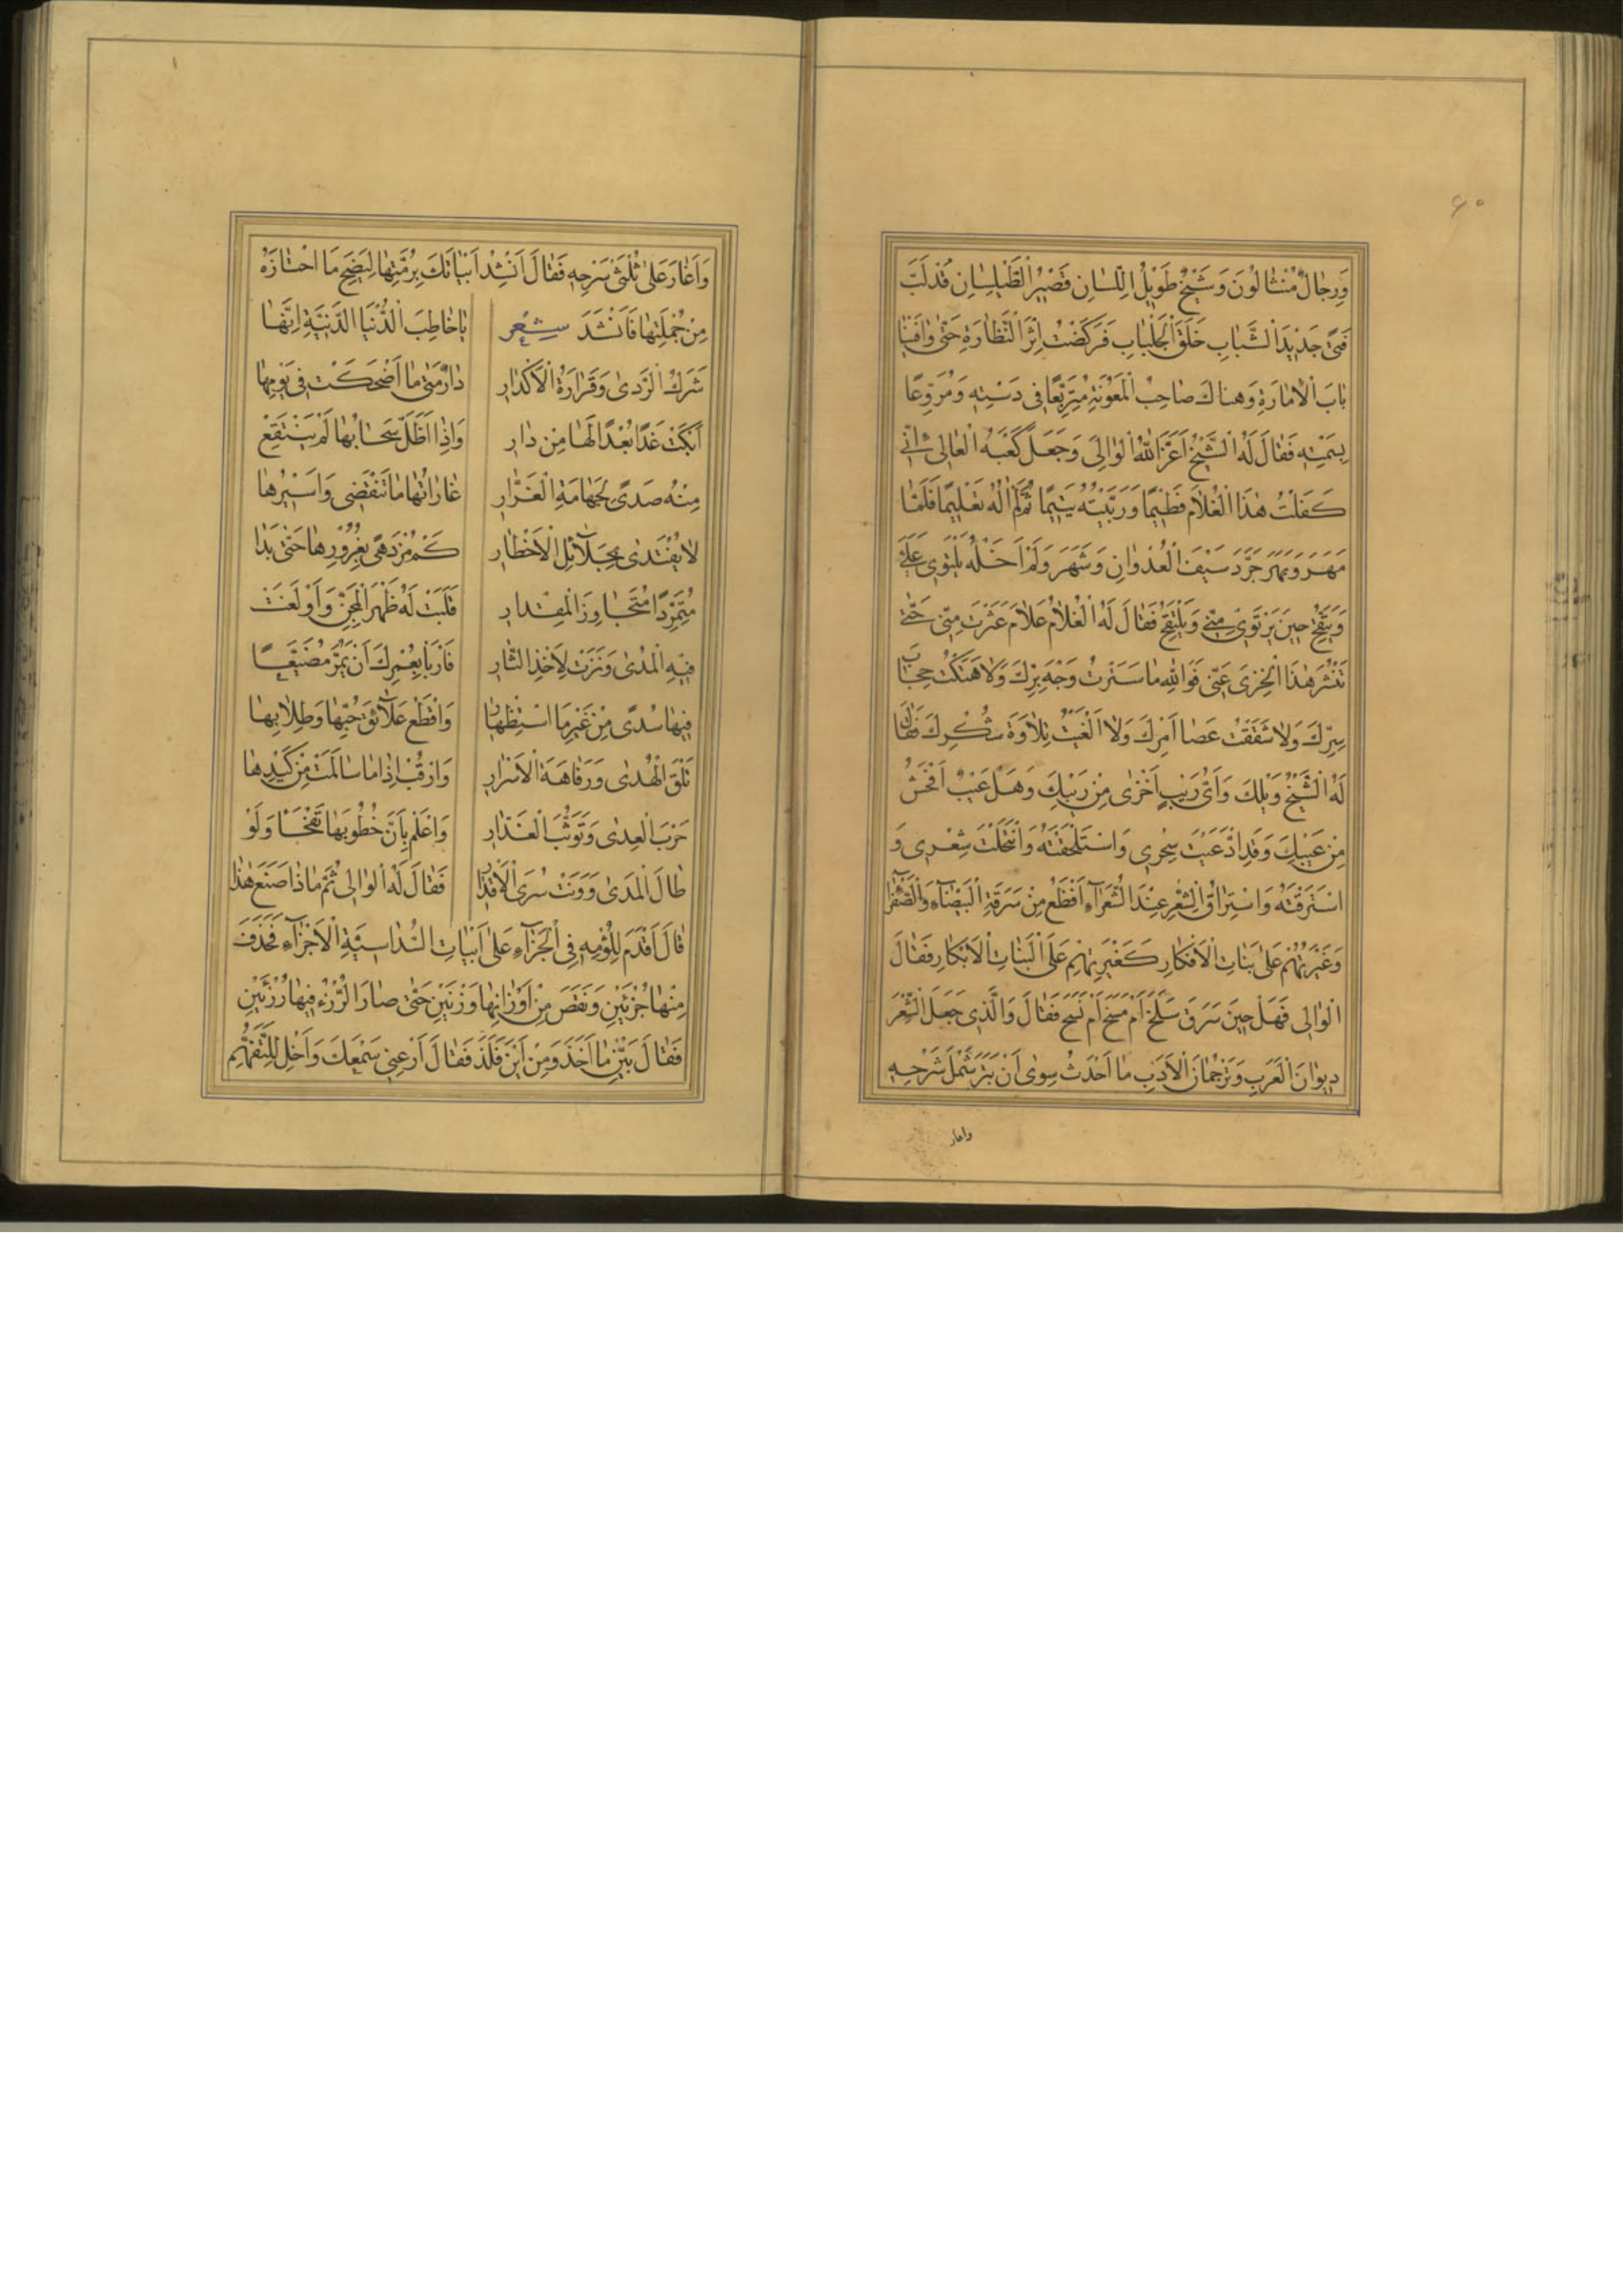 ٦٠
وَرِجَالٌ مُنْثَالُونَ وَشَيْخٌ طَوِيْلُ اللِّسَانِ قَصِيْرُ الطَّيْلِسَانِ قَدْ لَبَّبَ
فَتًى جَدِيْدَ الشَّبَابِ خَلَقَ الْجِلْبَابِ فَرَكَضْتُ اِثْرَ النَّظَّارَةِ حَتّٰى وَافَيْنَا
بَابَ الْاِمَارَةِ وَهناكَ صَاحِبُ الْمَعُوْنَةِ مُتَرَبِّعًا فِى دَسْتِهِ وَمُرَوِّعًا
بِسَمْتِهِ فَقَالَ لَهُ الشَّيْخُ اَعَزَّ اللّٰهُ الْوَالِىَ وَجَعَلَ كَعْبَهُ الْعَالِى اِنِّى
كَفَلْتُ هٰذَا الْغُلَامَ فَطِيْمًا وَرَبَّيْتُهُ يَتِيْمًا ثُمَّ لَمْ اٰلُهُ تَعْلِيْمًا فَلَمَّا
مَهَرَ وَبَهَرَ جَرَّدَ سَيْفَ الْعُدْوَانِ وَشَهَرَ وَلَمْ اَخَلْهُ يَلْتَوِى عَلَىَّ
وَيَتَّقِحُ حِينَ يَرْتَوِى مِنِّى وَيَلْتَقِحُ فَقَالَ لَهُ الْغُلَامُ عَلَامَ عَثَرْتَ مِنِّى حَتّٰى
تَنْشُرَ هٰذَا الْخِزْىَ عَنِّى فَوَاللّٰهِ مَا سَتَرْتُ وَجْهَ بِرِّكَ وَلَا هَتَكْتُ حِجَابَ
سِرِّكَ وَلَا شَقَقْتُ عَصَا اَمْرِكَ وَلَا اَلْغَيْتُ تِلَاوَةَ شُكْرِكَ فَقَالَ
لَهُ الشَّيْخُ وَيْلَكَ وَاَىُّ رَيْبٍ اَخْزٰى مِنْ رَيْبِكَ وَهَلْ عَيْبٌ اَفْحَشُ
مِنْ عَيْبِكَ وَقَدِ ادَّعَيْتَ سِحْرِى وَاسْتَلْحَقْتَهُ وَانْتَحَلْتَ شِعْرِى وَ
اسْتَرَقْتَهُ وَاسْتِرَاقُ الشِّعْرِ عِنْدَ الشُّعَرَآءِ اَفْظَعُ مِنْ سَرَقَةِ الْبَيْضَآءِ وَالصَّفْرَآءِ
وَغَيْرَتُهُمْ عَلٰى بَنَاتِ الْاَفْكَارِ كَغَيْرَتِهِمْ عَلَى الْبَنَاتِ الْاَبْكَارِ فَقَالَ
الْوَالِى فَهَلْ حِينَ سَرَقَ سَلَخَ اَمْ مَسَخَ اَمْ نَسَخَ فَقَالَ وَالَّذِى جَعَلَ الشِّعْرَ
دِيوَانَ الْعَرَبِ وَتَرْجُمَانَ الْاَدَبِ مَا اَحْدَثَ سِوٰى اَنْ بَتَرَ شَمْلَ شَرْحِهِ
واغار
وَاَغَارَ عَلٰى ثُلُثَىْ سَرْحِهِ فَقَالَ اَنْشِدْ اَبْيَاتَكَ بِرُمَّتِهَا لِيَضِحَ مَا احْتَازَهُ
مِنْ جُمْلَتِهَا فَاَنْشَدَ شِعْر يَا خَاطِبَ الدُّنْيَا الدَّنِيَّةِ اِنَّهَا
شَرَكُ الرَّدٰى وَقَرَارَةُ الْاَكْدَارِ دَارٌ مَتٰى مَا اَضْحَكَتْ فِى يَوْمِهَا
اَبْكَتْ غَدًا بُعْدًا لَهَا مِنْ دَارِ وَاِذَا اَظَلَّ سَحَابُهَا لَمْ يَنْتَقِعْ
مِنْهُ صَدًى لِجَهَامَةِ الْغَرَّارِ غَارَاتُهَا مَا تَنْقَضِى وَاَسِيْرُهَا
لَا يُفْتَدٰى بِجَلَآئِلِ الْاَخْطَارِ كَمْ مُزْدَهًى بِغُرُوْرِهَا حَتّٰى بَدَا
مُتَمَرِّدًا مُتَجَاوِزَ الْمِقْدَارِ قَلَبَتْ لَهُ ظَهْرَ الْمِجَنِّ وَاَوْلَغَتْ
فِيْهِ الْمُدٰى وَنَزَتْ لِاَخْذِ الثَّارِ فَارْبَأْ بِعُمْرِكَ اَنْ يَمُرَّ مُضَيَّعًا
فِيهَا سُدًى مِنْ غَيْرِ مَا اسْتِظْهَارِ وَاقْطَعْ عَلَآئِقَ حُبِّهَا وَطِلَابِهَا
تَلْقَ الْهُدٰى وَرَفَاهَةَ الْاَسْرَارِ وَارْقُبْ اِذَا مَا سَالَمَتْ مِنْ كَيْدِهَا
حَرْبَ الْعِدٰى وَتَوَثُّبَ الْغَدَّارِ وَاعْلَمْ بِاَنَّ خُطُوْبَهَا تَفْجَا وَلَوْ
طَالَ الْمَدٰى وَوَنَتْ سُرَى الْاَقْدَارِ فَقَالَ لَهُ الْوَالِى ثُمَّ مَاذَا صَنَعَ هٰذَا
قَالَ اَقْدَمَ لِلُؤْمِهِ فِى الْجَزَآءِ عَلٰى اَبْيَاتِىَ السُّدَاسِيَّةِ الْاَجْزَآءِ فَحَذَفَ
مِنْهَا جُزْئَيْنِ وَنَقَصَ مِنْ اَوْزَانِهَا وَزْنَيْنِ حَتّٰى صَارَ الرُّزْءُ فِيهَا رُزْئَيْنِ
فَقَالَ بَيِّنْ مَا اَخَذَ وَمِنْ اَيْنَ فَلَذَ فَقَالَ اَرْعِنِى سَمْعَكَ وَاَخْلِ لِلتَّفَهُّمِ